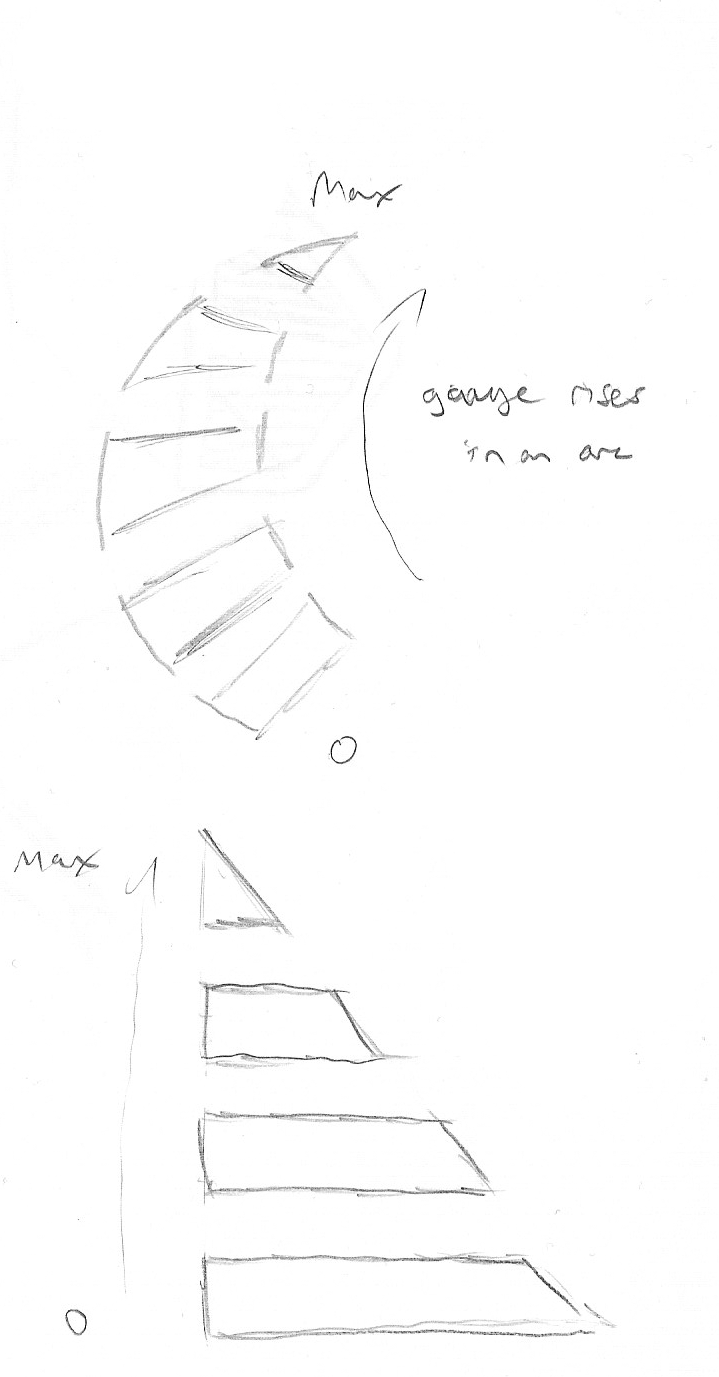 Max
gauge rises
in an arc
0
Max
0